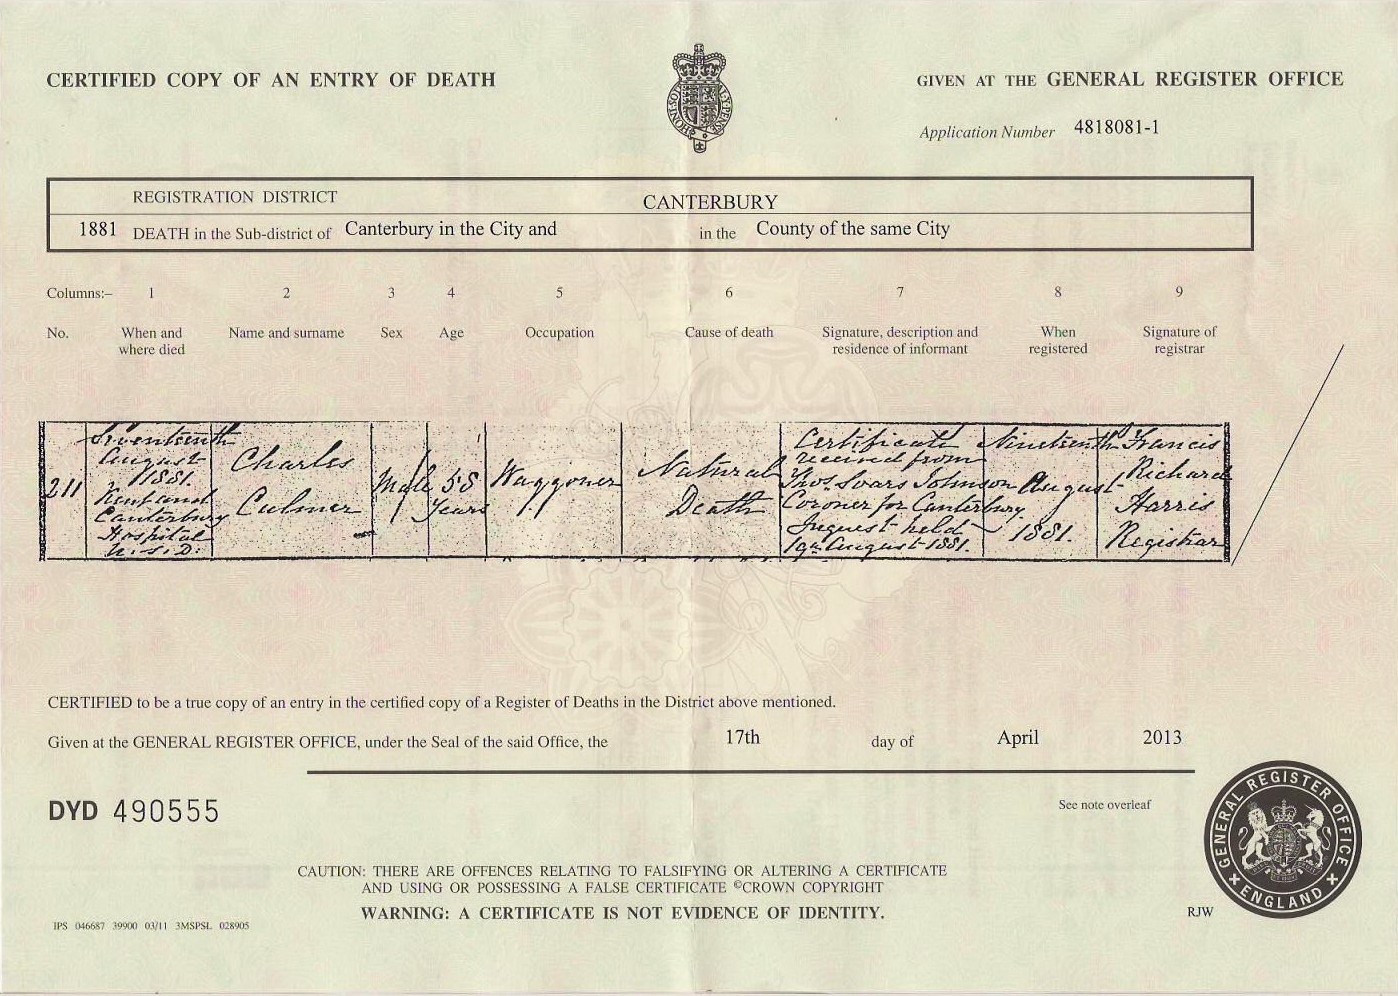 CERTIFIED COPY OF AN ENTRY OF DEATH
GIVEN AT THE GENERAL REGISTER OFFICE
Application Number 4818081-1
REGISTRATION DISTRICT CANTERBURY
1881 DEATH in the Sub-district of Canterbury in the City and in the County of the same City
Columns:– 1 2 3 4 5 6 7 8 9
No. When and where died Name and surname Sex Age Occupation Cause of death Signature, description and residence of informant When registered Signature of registrar
211
Seventeenth
August
1881.
Kent and
Canterbury
Hospital
U.S.D.
Charles
Culmer
Male
58
Years
Waggoner
Natural
Death
Certificate
received from
Thos. Soars Johnson
Coroner for Canterbury.
Inquest held
19th August 1881.
Nineteenth
August
1881.
Francis
Richard
Harris
Registrar
CERTIFIED to be a true copy of an entry in the certified copy of a Register of Deaths in the District above mentioned.
Given at the GENERAL REGISTER OFFICE, under the Seal of the said Office, the 17th day of April 2013
DYD 490555
See note overleaf
GENERAL REGISTER OFFICE
ENGLAND
CAUTION: THERE ARE OFFENCES RELATING TO FALSIFYING OR ALTERING A CERTIFICATE
AND USING OR POSSESSING A FALSE CERTIFICATE ©CROWN COPYRIGHT
WARNING: A CERTIFICATE IS NOT EVIDENCE OF IDENTITY.
IPS 046687 39900 03/11 3MSPSL 028905
RJW